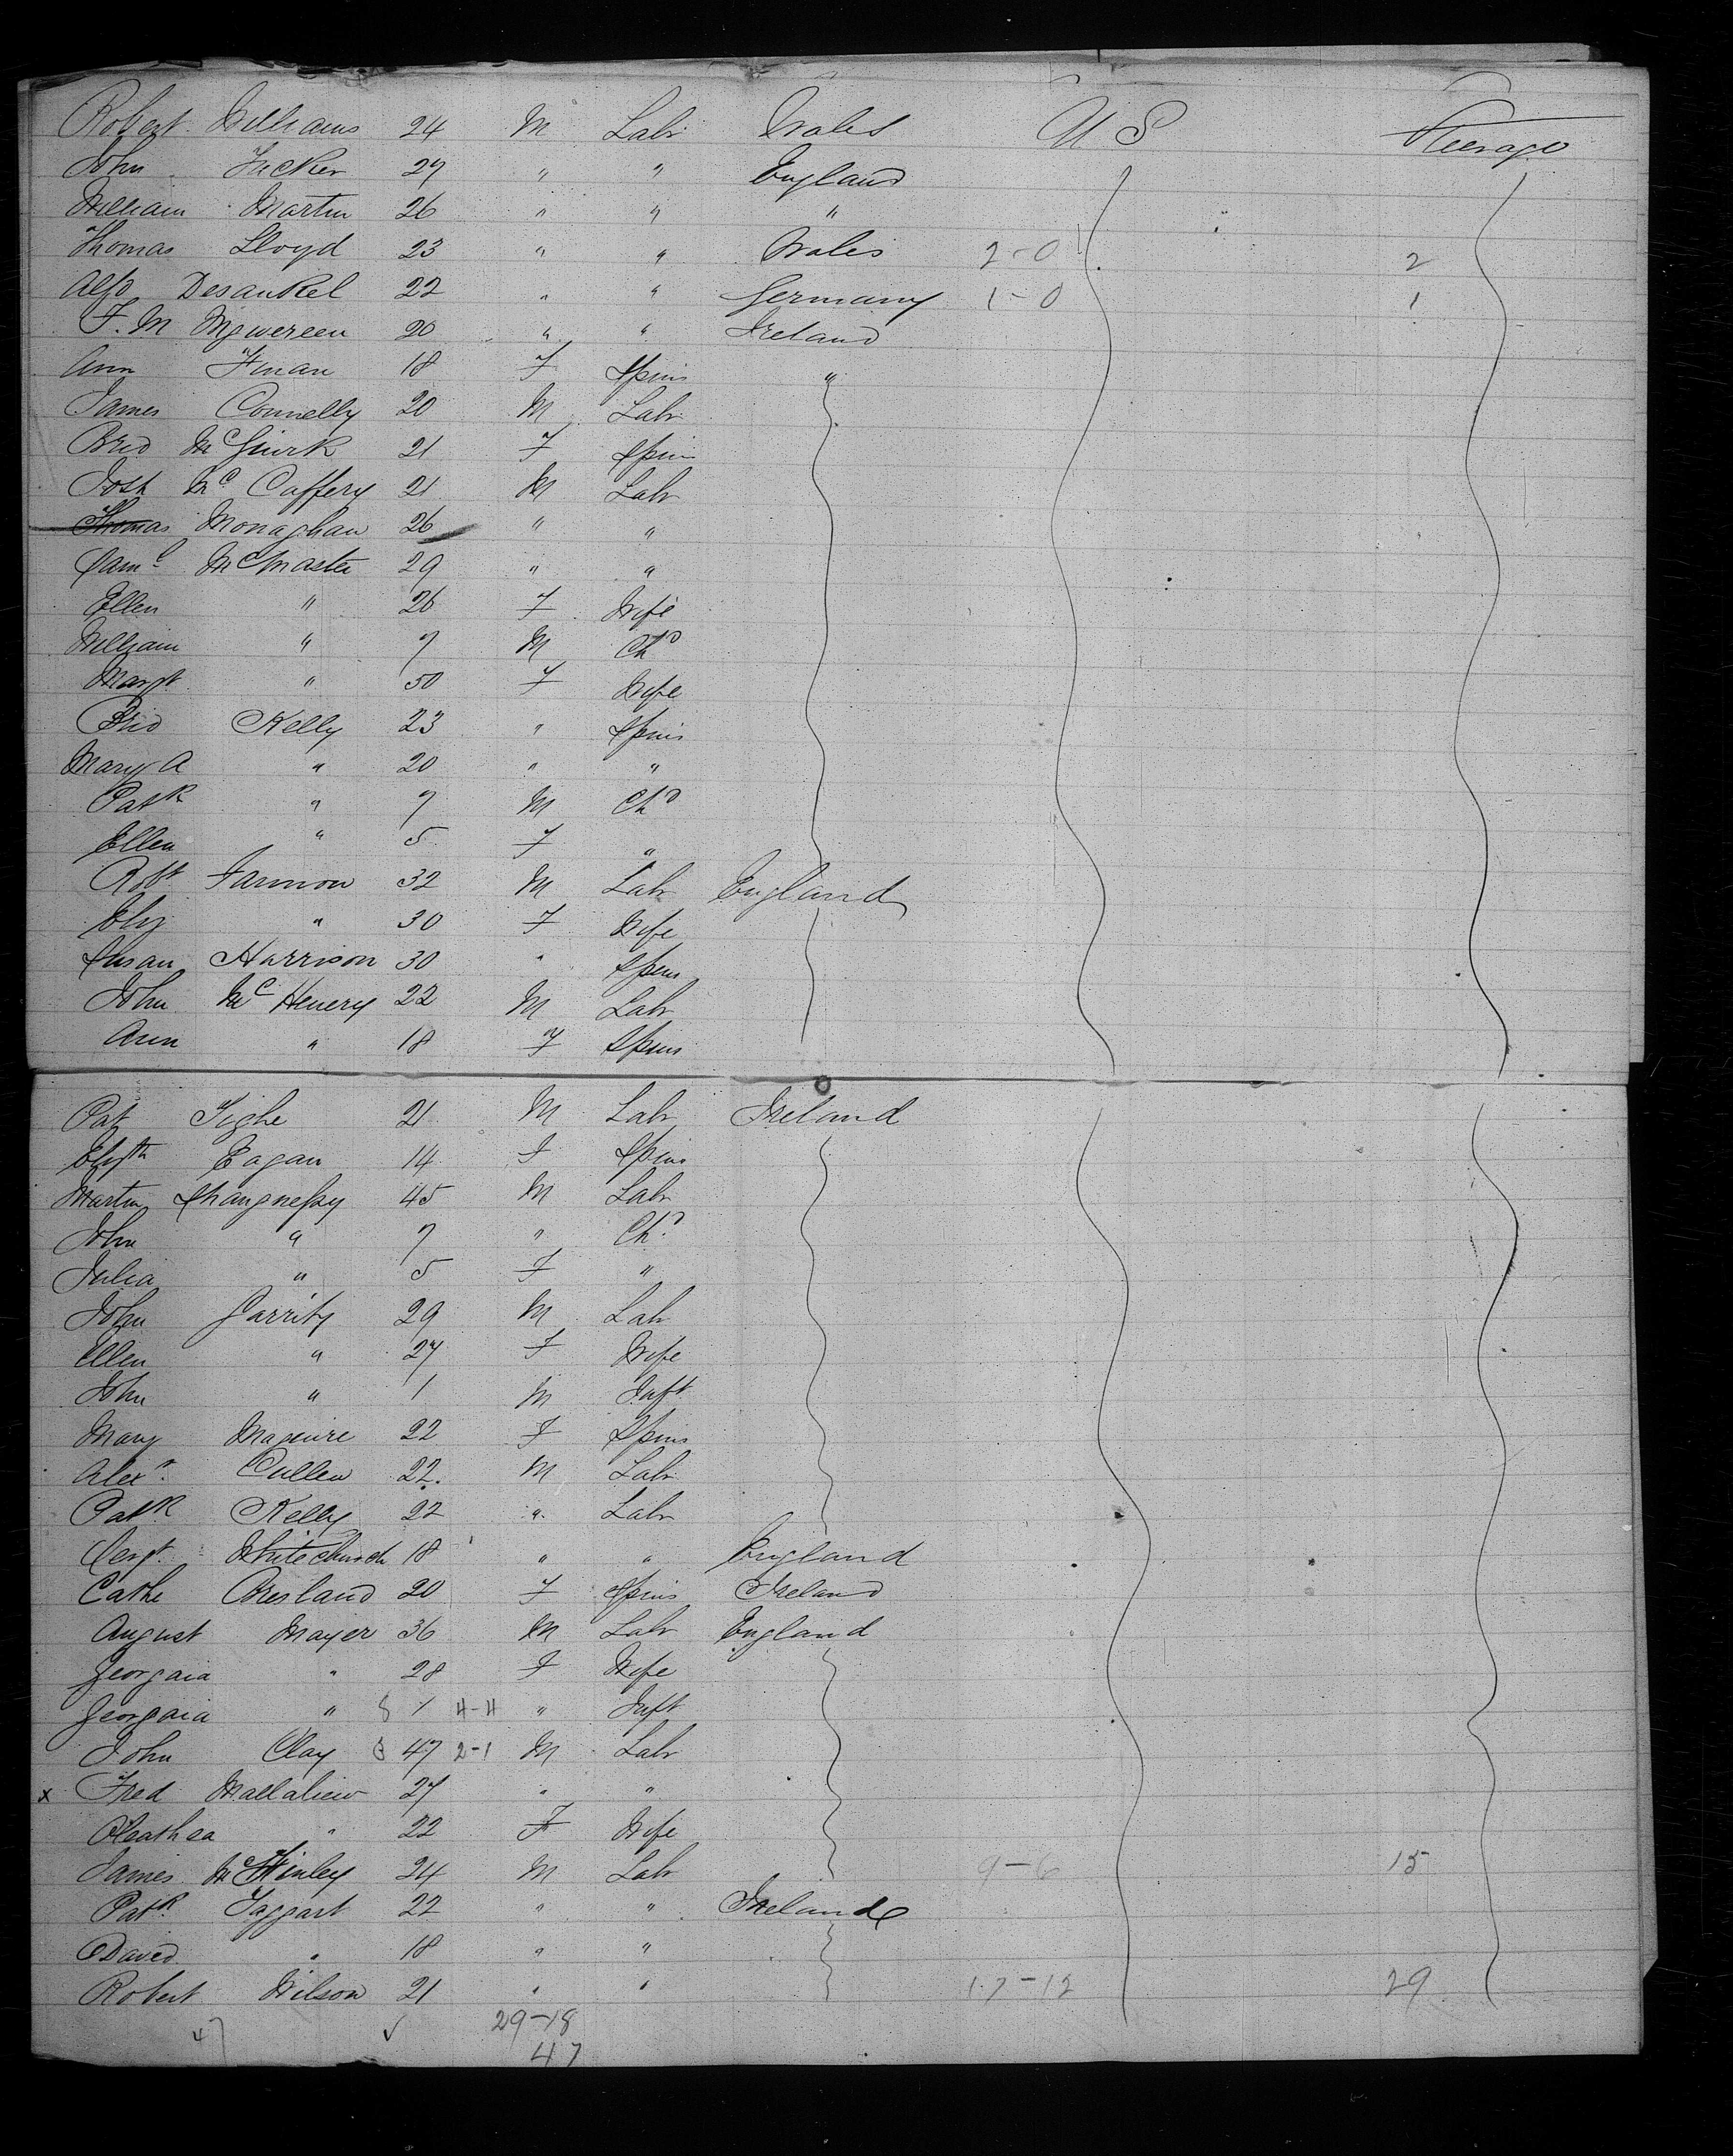 Robert Williams 24 M Labr Wales U S Steerage
John Tucker 27 " " England
William Martin 26 " " "
Thomas Lloyd 23 " " Wales 2-0 2
Alfd Desankel 22 " " Germany 1-0 1
F. M 20 " " Ireland
Ann Finan 18 F Spins "
James Connelly 20 M Labr
Brid McGuirk 21 F Spins
Josh Mc Caffery 21 M Labr
Thomas Monaghan 26 " "
Saml McMaster 29 " "
Ellen " 26 F Wife
William " 7 M Chd
Margt " 50 F Wife
Brid Kelly 23 " Spins
Mary A " 20 " "
Patk " 7 M Chd
Ellen " 5 F "
Robt Farmon 32 M Labr England
Eliz " 30 F Wife
Susan Harrison 30 " Spins
John Mc Henery 22 M Labr
Ann " 18 F Spins
Pat Tighe 21 M Labr Ireland
Elizth Eagan 14 F Spins
Martin Shaugnessy 45 M Labr
John " 7 " Chd
Julia " 5 F "
John Garrity 29 M Labr
Ellen " 27 F Wife
John " 1 M Inft
Mary Maguire 22 F Spins
Alexr Cullen 22 M Labr
Patk Kelly 22 " Labr
Whitechurch 18 " " England
Cathe Bresland 20 F Spins Ireland
August Mayer 36 M Labr England
Georgaia " 28 F Wife
Georgaia " 1 4-4 " Inft
John Clay 47 2-1 M Labr
x Fred Mallalieu 27 " "
Aleathea " 22 F Wife
James McKinley 24 M Labr 9-6 15
Patk Taggart 22 " " Ireland
David " 18 " "
Robert Wilson 21 " " 17-12 29
47 29-18
47